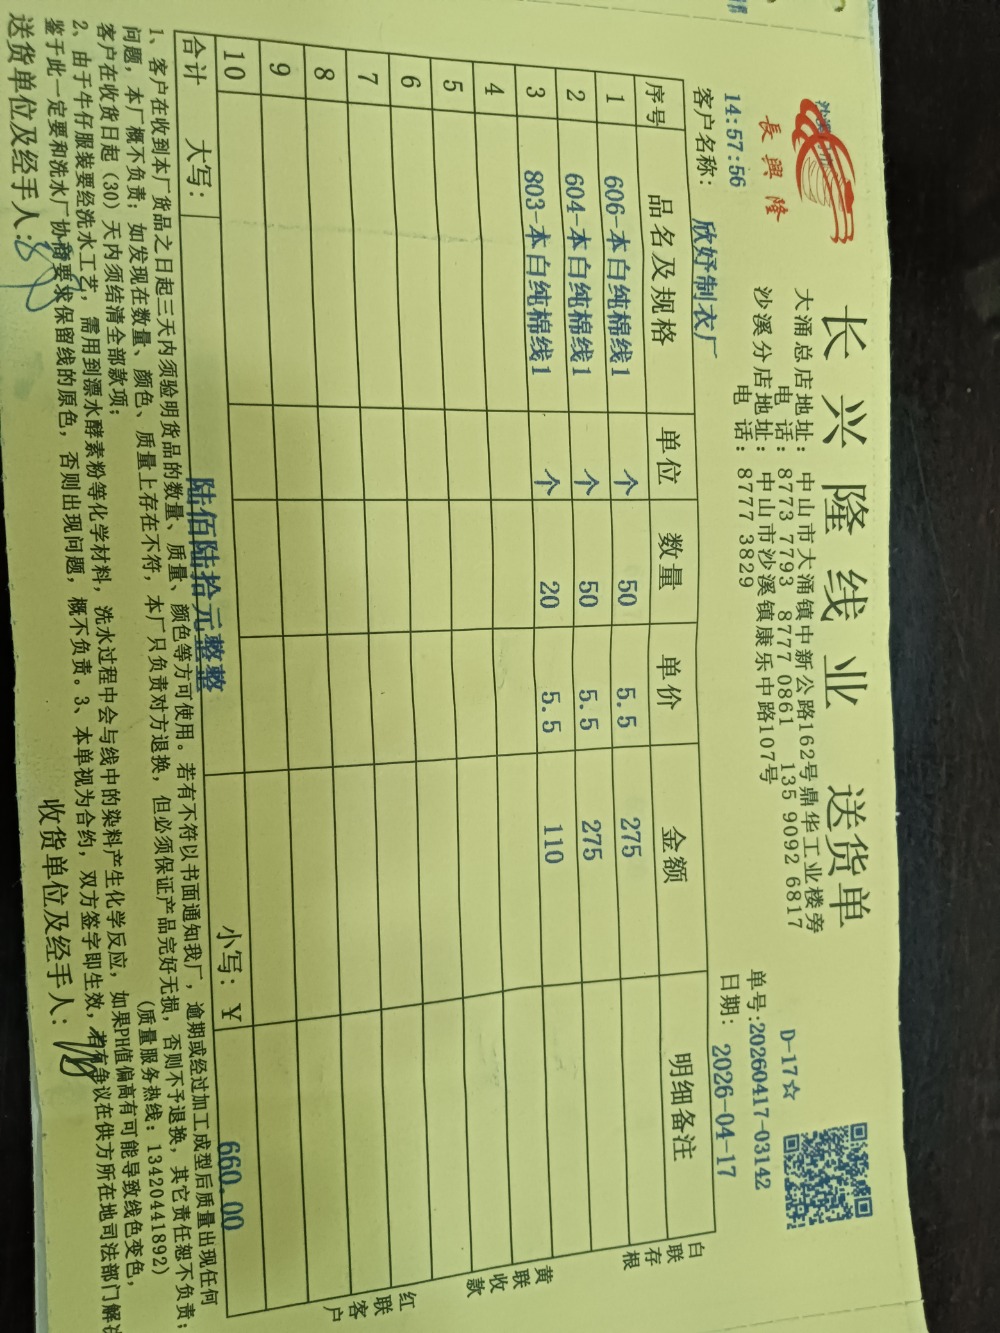 長興隆
长兴隆线业 送货单
大涌总店地址: 中山市大涌镇中新公路162号鼎华工业楼旁
电话: 8773 7793 8777 0861 135 9092 6817
沙溪分店地址: 中山市沙溪镇康乐中路107号
电话: 8777 3829
D-17☆
单号:20260417-03142
14:57:56
日期: 2026-04-17
客户名称: 欣妤制衣厂
序号 品名及规格 单位 数量 单价 金额 明细备注
1 606-本白纯棉线1 个 50 5.5 275
2 604-本白纯棉线1 个 50 5.5 275
3 803-本白纯棉线1 个 20 5.5 110
4
5
6
7
8
9
10
合计 大写: 陆佰陆拾元整整 小写: ¥ 660.00
白联存根
黄联收款
红联客户
1、客户在收到本厂货品之日起三天内须验明货品的数量、质量、颜色等方可使用。若有不符以书面通知我厂,逾期或经过加工成型后质量出现任何
问题,本厂概不负责;如发现在数量、颜色、质量上存在不符,本厂只负责对方退换,但必须保证产品完好无损,否则不予退换,其它责任恕不负责;
客户在收货日起(30)天内须结清全部款项; (质量服务热线:13420441892)
2、由于牛仔服装要经洗水工艺,需用到漂水酵素粉等化学材料,洗水过程中会与线中的染料产生化学反应,如果PH值偏高有可能导致线色变色,
鉴于此一定要和洗水厂协商要求保留线的原色,否则出现问题,概不负责。3、本单视为合约,双方签字即生效,若有争议在供方所在地司法部门解决
送货单位及经手人: 收货单位及经手人: